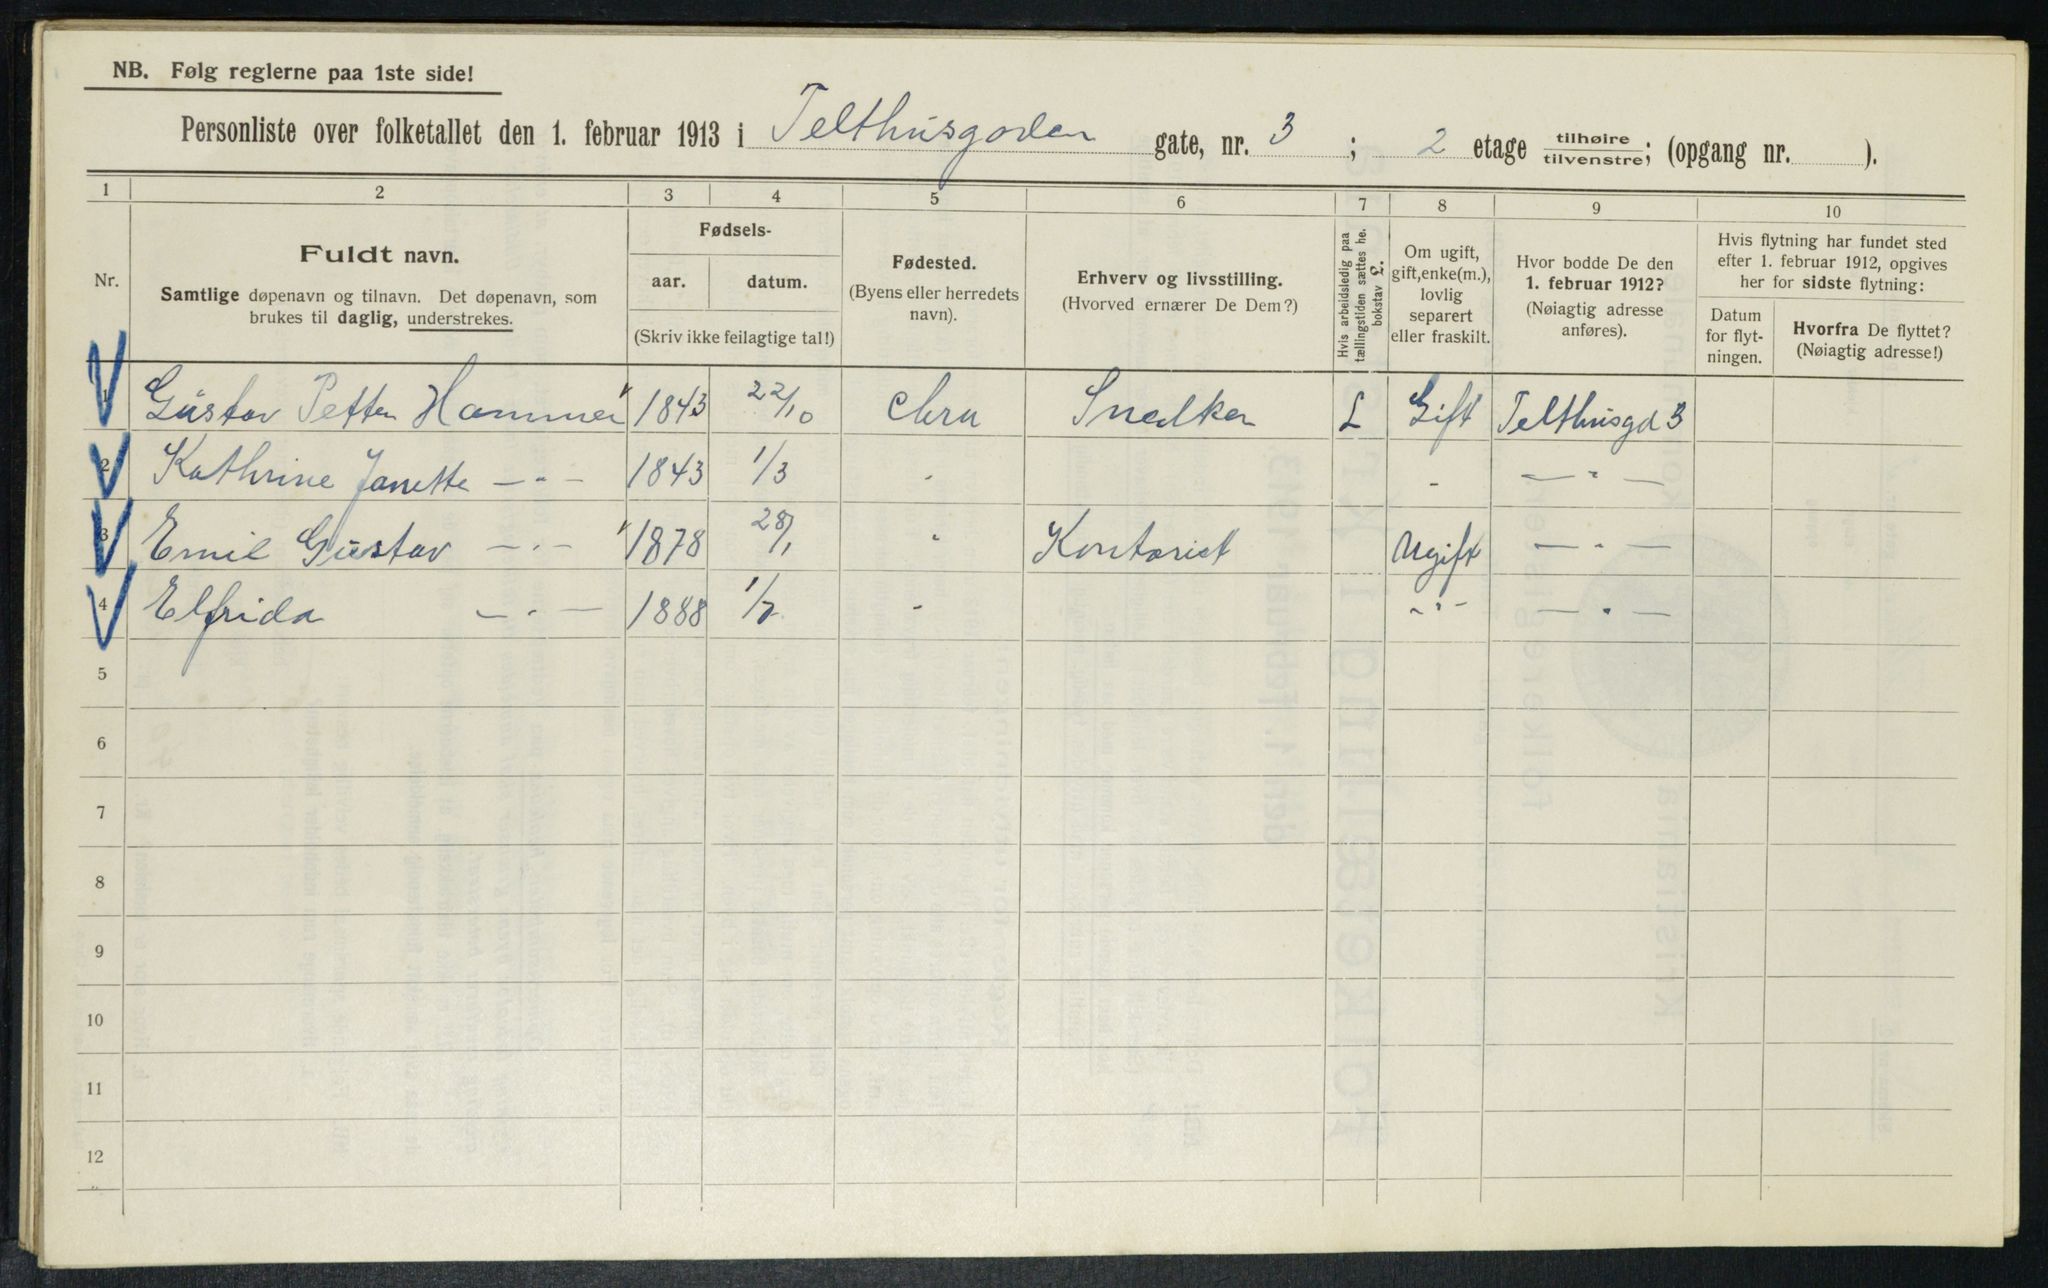 NB. Følg reglerne paa 1ste side!
Personliste over folketallet den 1. februar 1913 i Telthusgaden gate, nr. 3 ; 2 etage tilhøire tilvenstre; (opgang nr. ).
1 2 3 4 5 6 7 8 9 10
Nr.
Fuldt navn.
Samtlige døpenavn og tilnavn. Det døpenavn, som
brukes til daglig, understrekes.
Fødsels-
aar. datum.
(Skriv ikke feilagtige tal!)
Fødested.
(Byens eller herredets
navn).
Erhverv og livsstilling.
(Hvorved ernærer De Dem?)
Hvis arbeidsledig paa
tællingstiden sættes he.
bokstav £.
Om ugift,
gift, enke(m.),
lovlig
separert
eller fraskilt.
Hvor bodde De den
1. februar 1912?
(Nøiagtig adresse
anføres).
Hvis flytning har fundet sted
efter 1. februar 1912, opgives
her for sidste flytning:
Datum
for flyt-
ningen.
Hvorfra De flyttet?
(Nøiagtig adresse!)
1 Gustav Petter Hammer 1843 22/10 Chra Snedker L Gift Telthusgd 3
2 Kathrine Janette — " — 1843 1/3 " " — " —
3 Emil Gustav — " — 1878 28/1 " Kontorist Ugift — " —
4 Elfrida — " — 1888 " — " — — " —
5
6
7
8
9
10
11
12